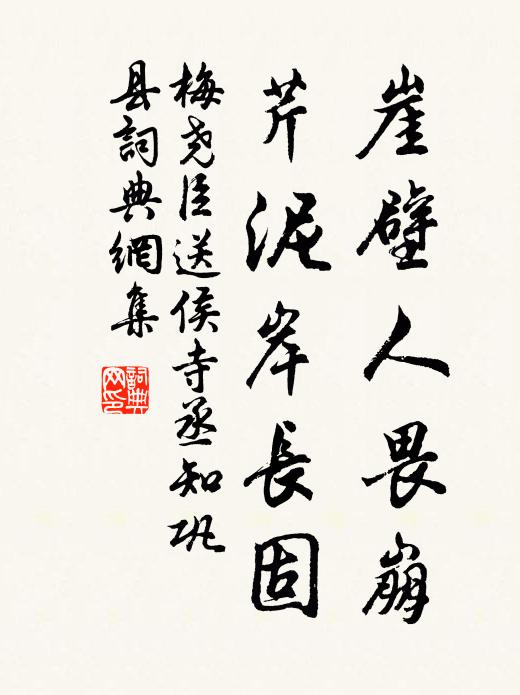 崖壁人畏崩
芹泥岸長固
梅尧臣送侯寺丞知巩
县詞典網集
詞典
网印